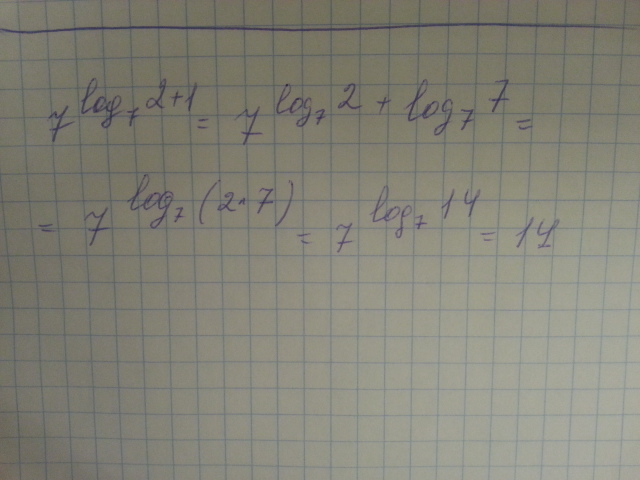 7^{log_7 2+1} = 7^{log_7 2 + log_7 7} =
= 7^{log_7 (2·7)} = 7^{log_7 14} = 14